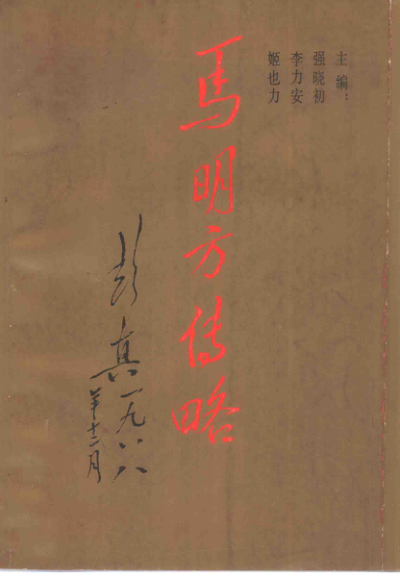 主编：
强晓初
李力安
姬也力
马明方传略
彭真一九八八
年十二月